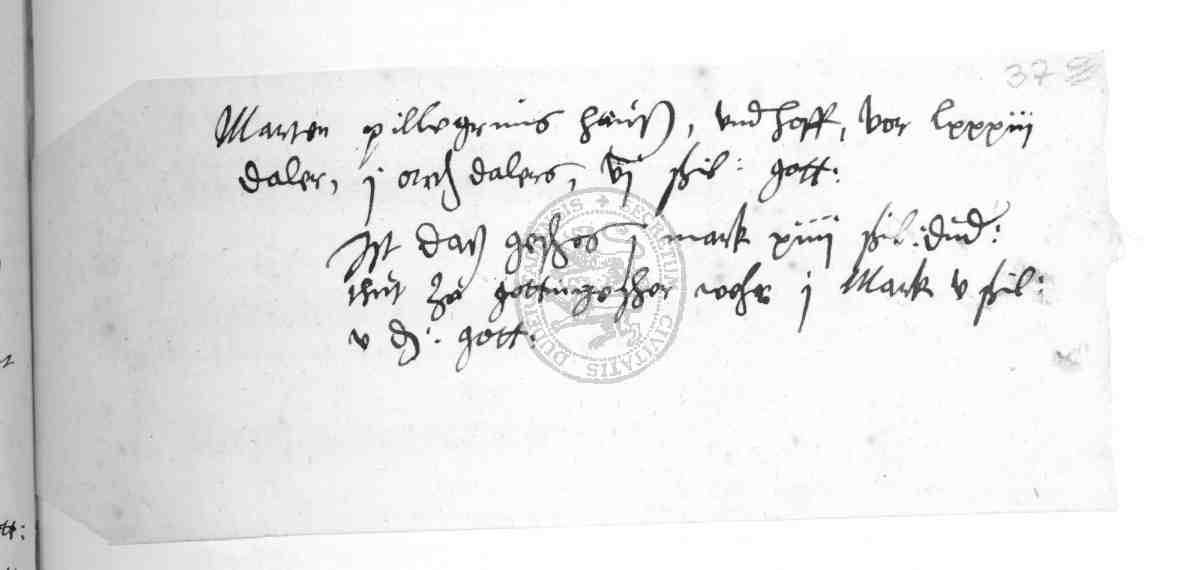 37
Marten pillegrims hauß, und hoff, vor lxxxiii
daler, j orth dalers, vj ßil: gott:
Ist daß geschos j mark xiiii ßil: dud:
thut zu gottingescher wehr j Mark v ßil:
v d: gott:
tt: